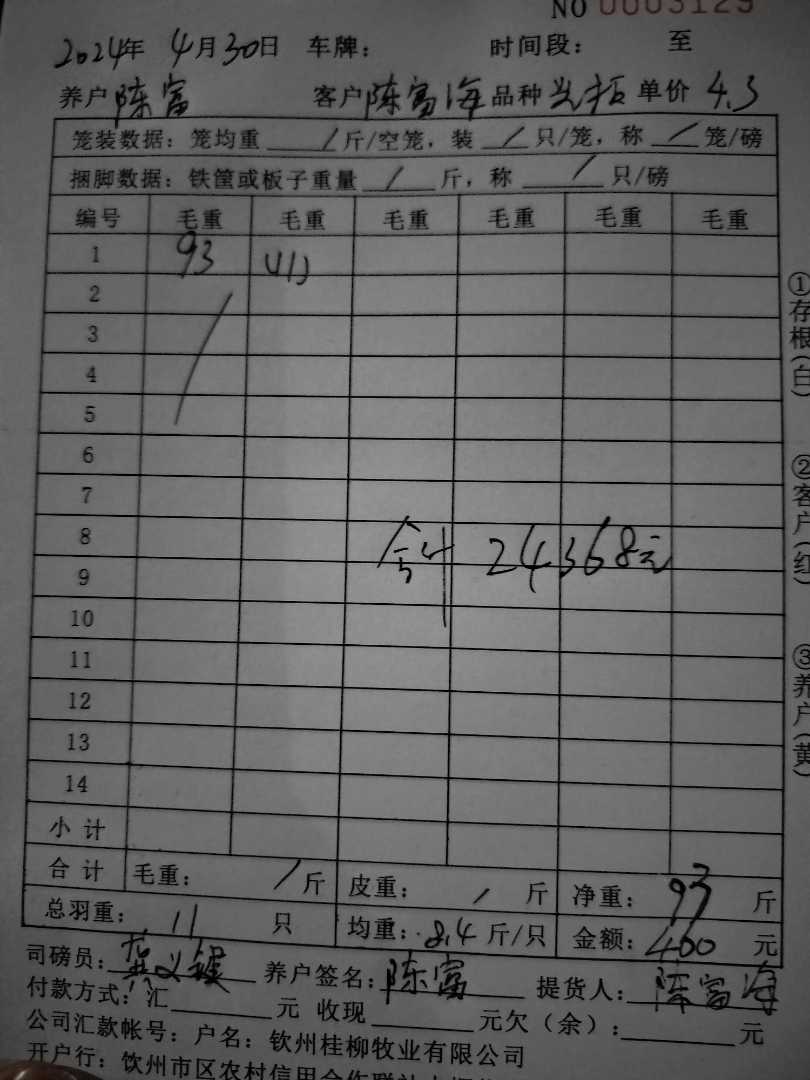 NO 0003129
2024年 4月30日 车牌： 时间段： 至
养户 陈富 客户 陈富海 品种 单价 4.3
笼装数据：笼均重 / 斤/空笼，装 / 只/笼，称 / 笼/磅
捆脚数据：铁筐或板子重量 / 斤，称 / 只/磅
编号 毛重 毛重 毛重 毛重 毛重 毛重
1 93 (11)
2
3
4
5
6
7
8
合计 24368元
9
10
11
12
13
14
小计
合计 毛重： / 斤 皮重： / 斤 净重： 93 斤
总羽重： 11 只 均重： 8.4 斤/只 金额： 400 元
司磅员： 养户签名： 陈富 提货人： 陈富海
付款方式：汇 元 收现 元欠（余）： 元
公司汇款帐号：户名：钦州桂柳牧业有限公司
开户行：钦州市区农村信用合作联社
①存根（白） ②客户（红） ③养户（黄）